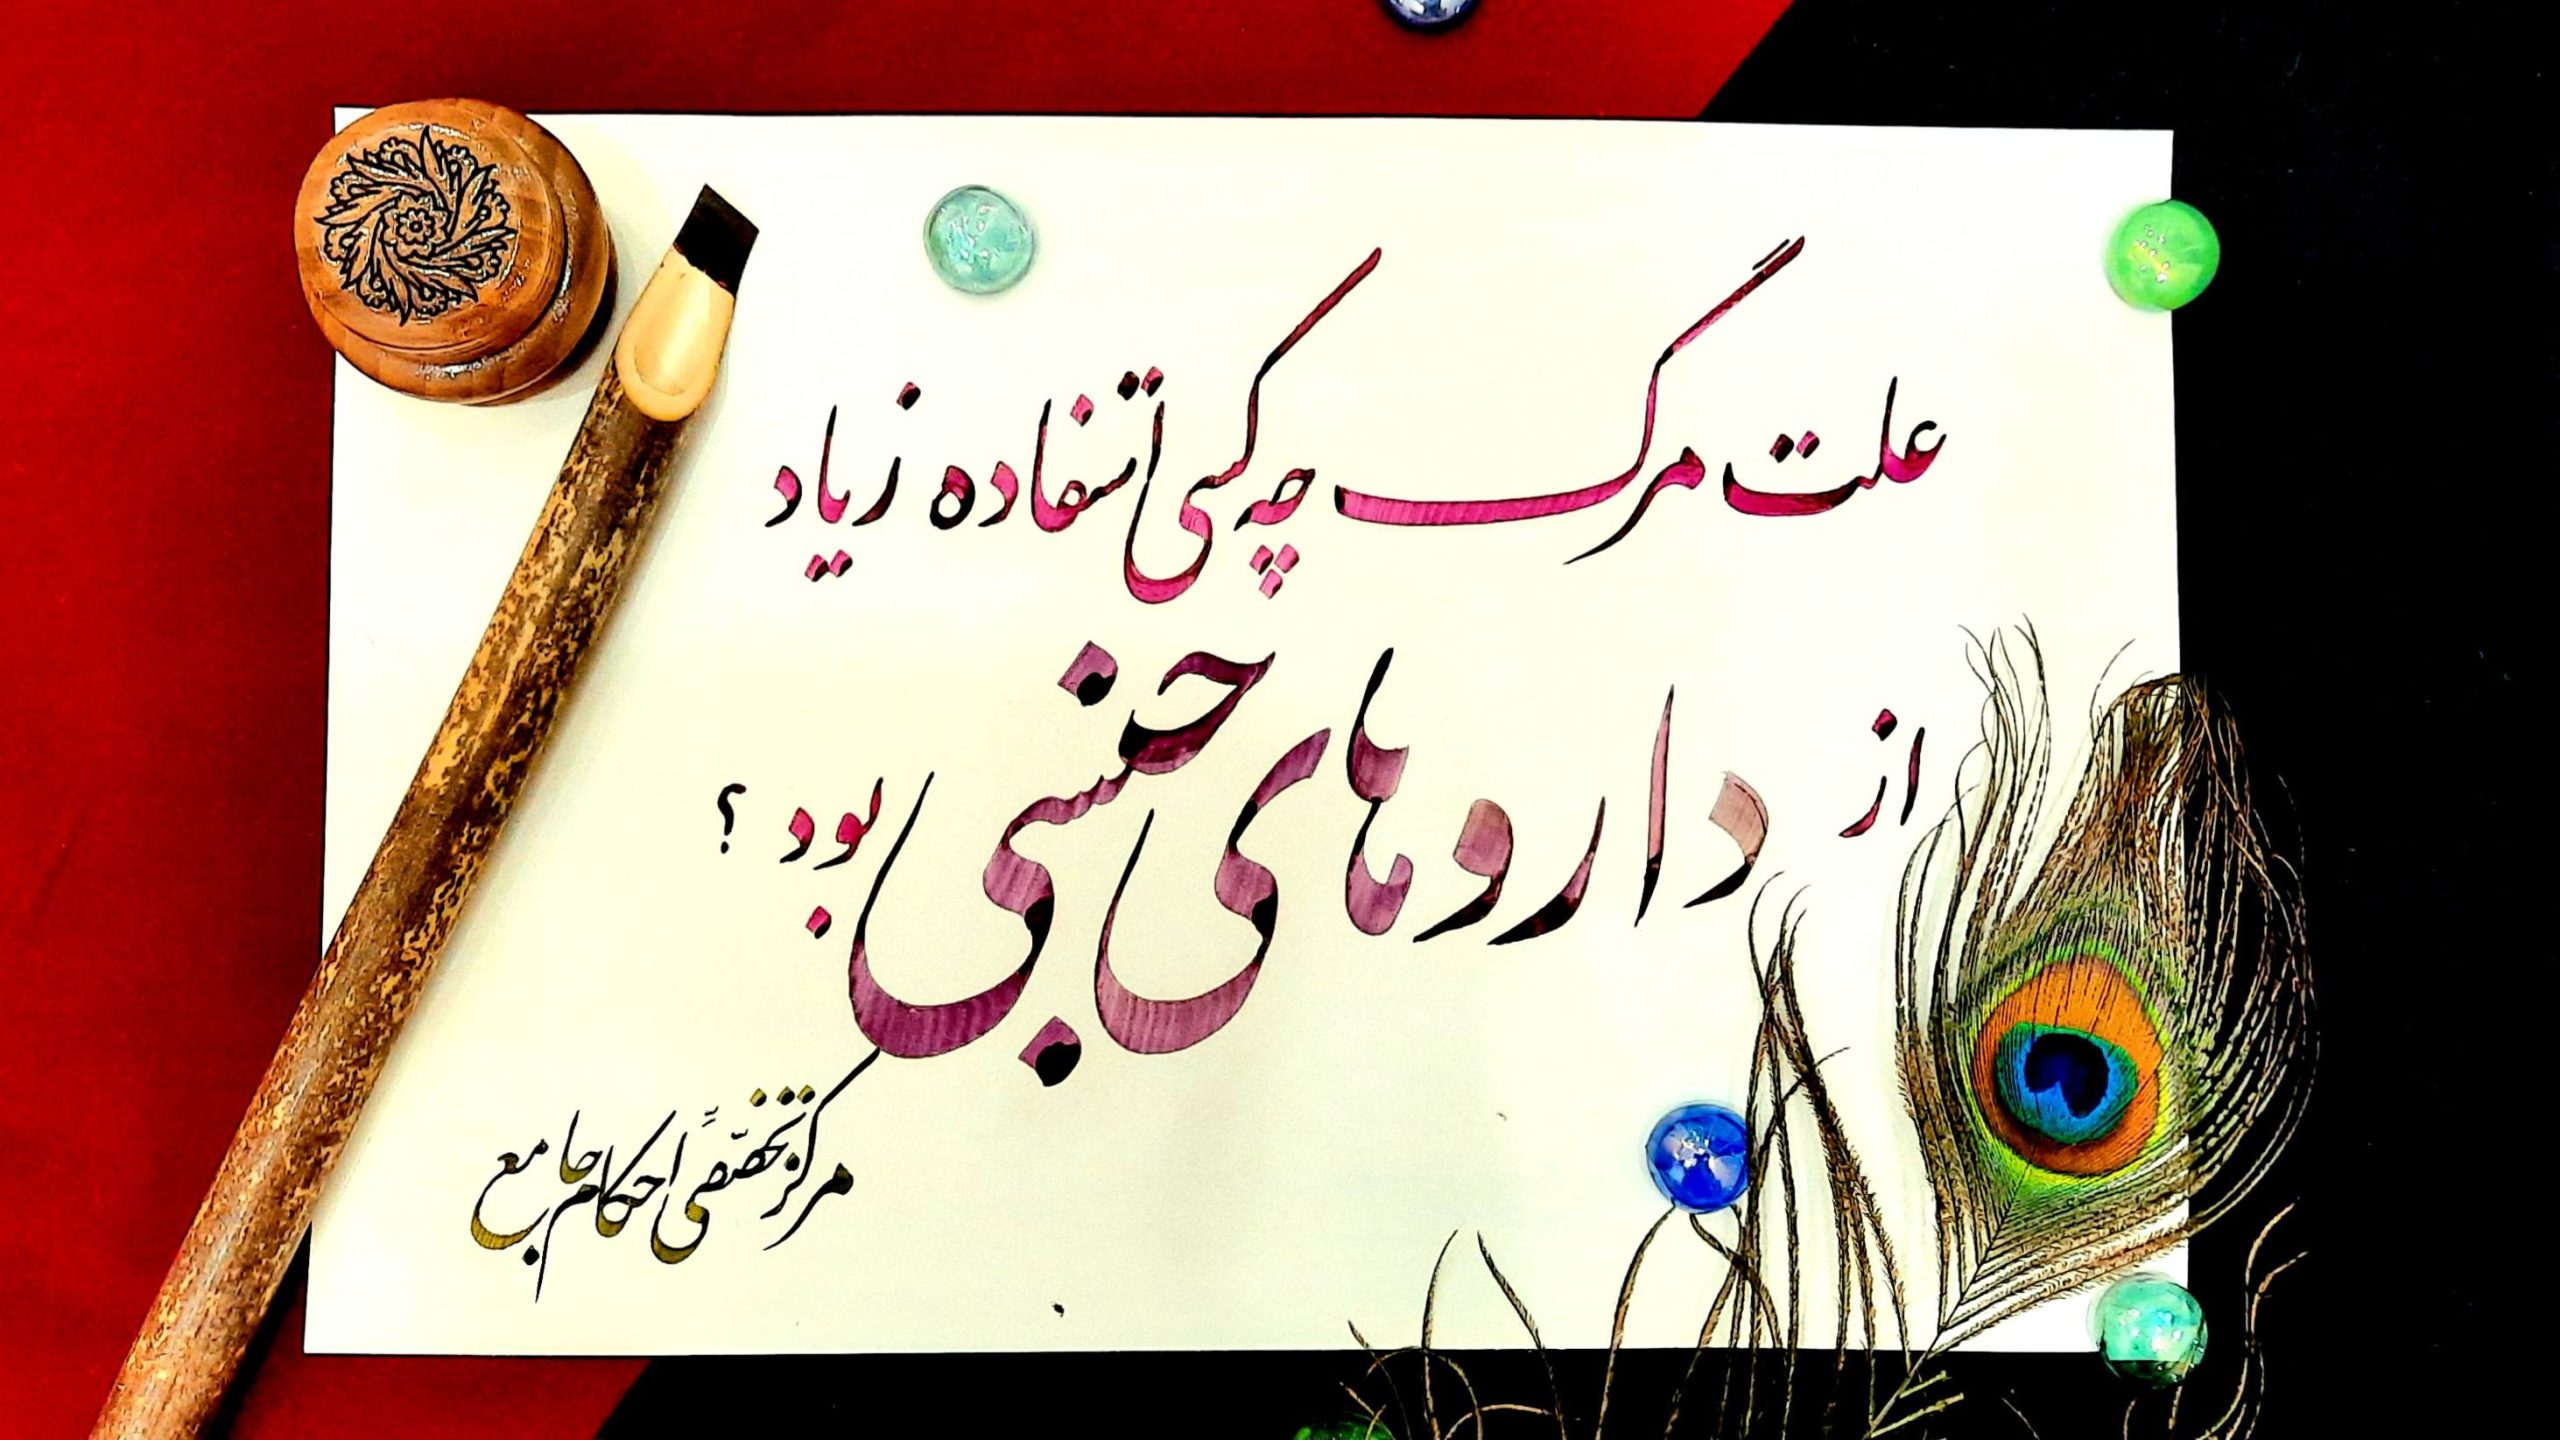 علت مرگ چه کسی استفاده زیاد
از داروهای جنسی بود ؟
مرکز تخصّصی احکام جامع